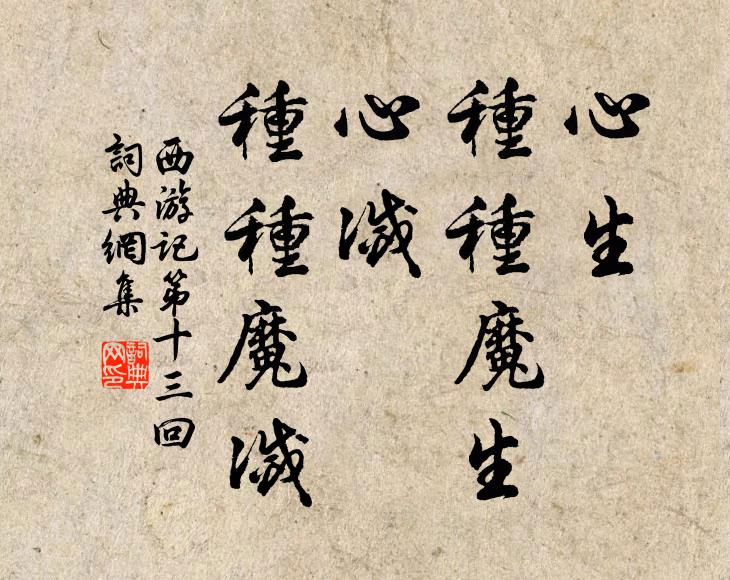 心生
種種魔生
心滅
種種魔滅
西游記第十三回
詞典網集
詞典
网印